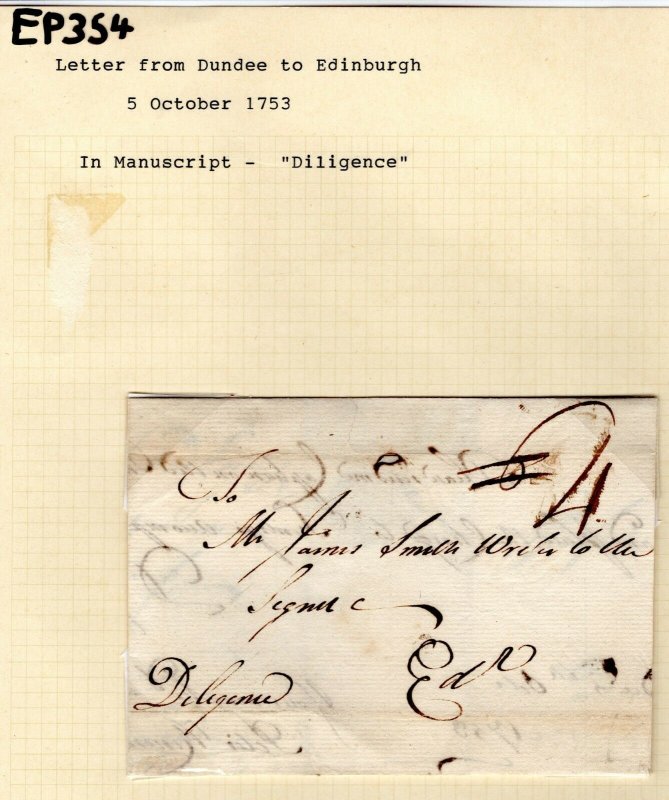 EP354
Letter from Dundee to Edinburgh
5 October 1753
In Manuscript - "Diligence"
4
To
Mr James Smith Writer to the
Signet
Edr
Diligence